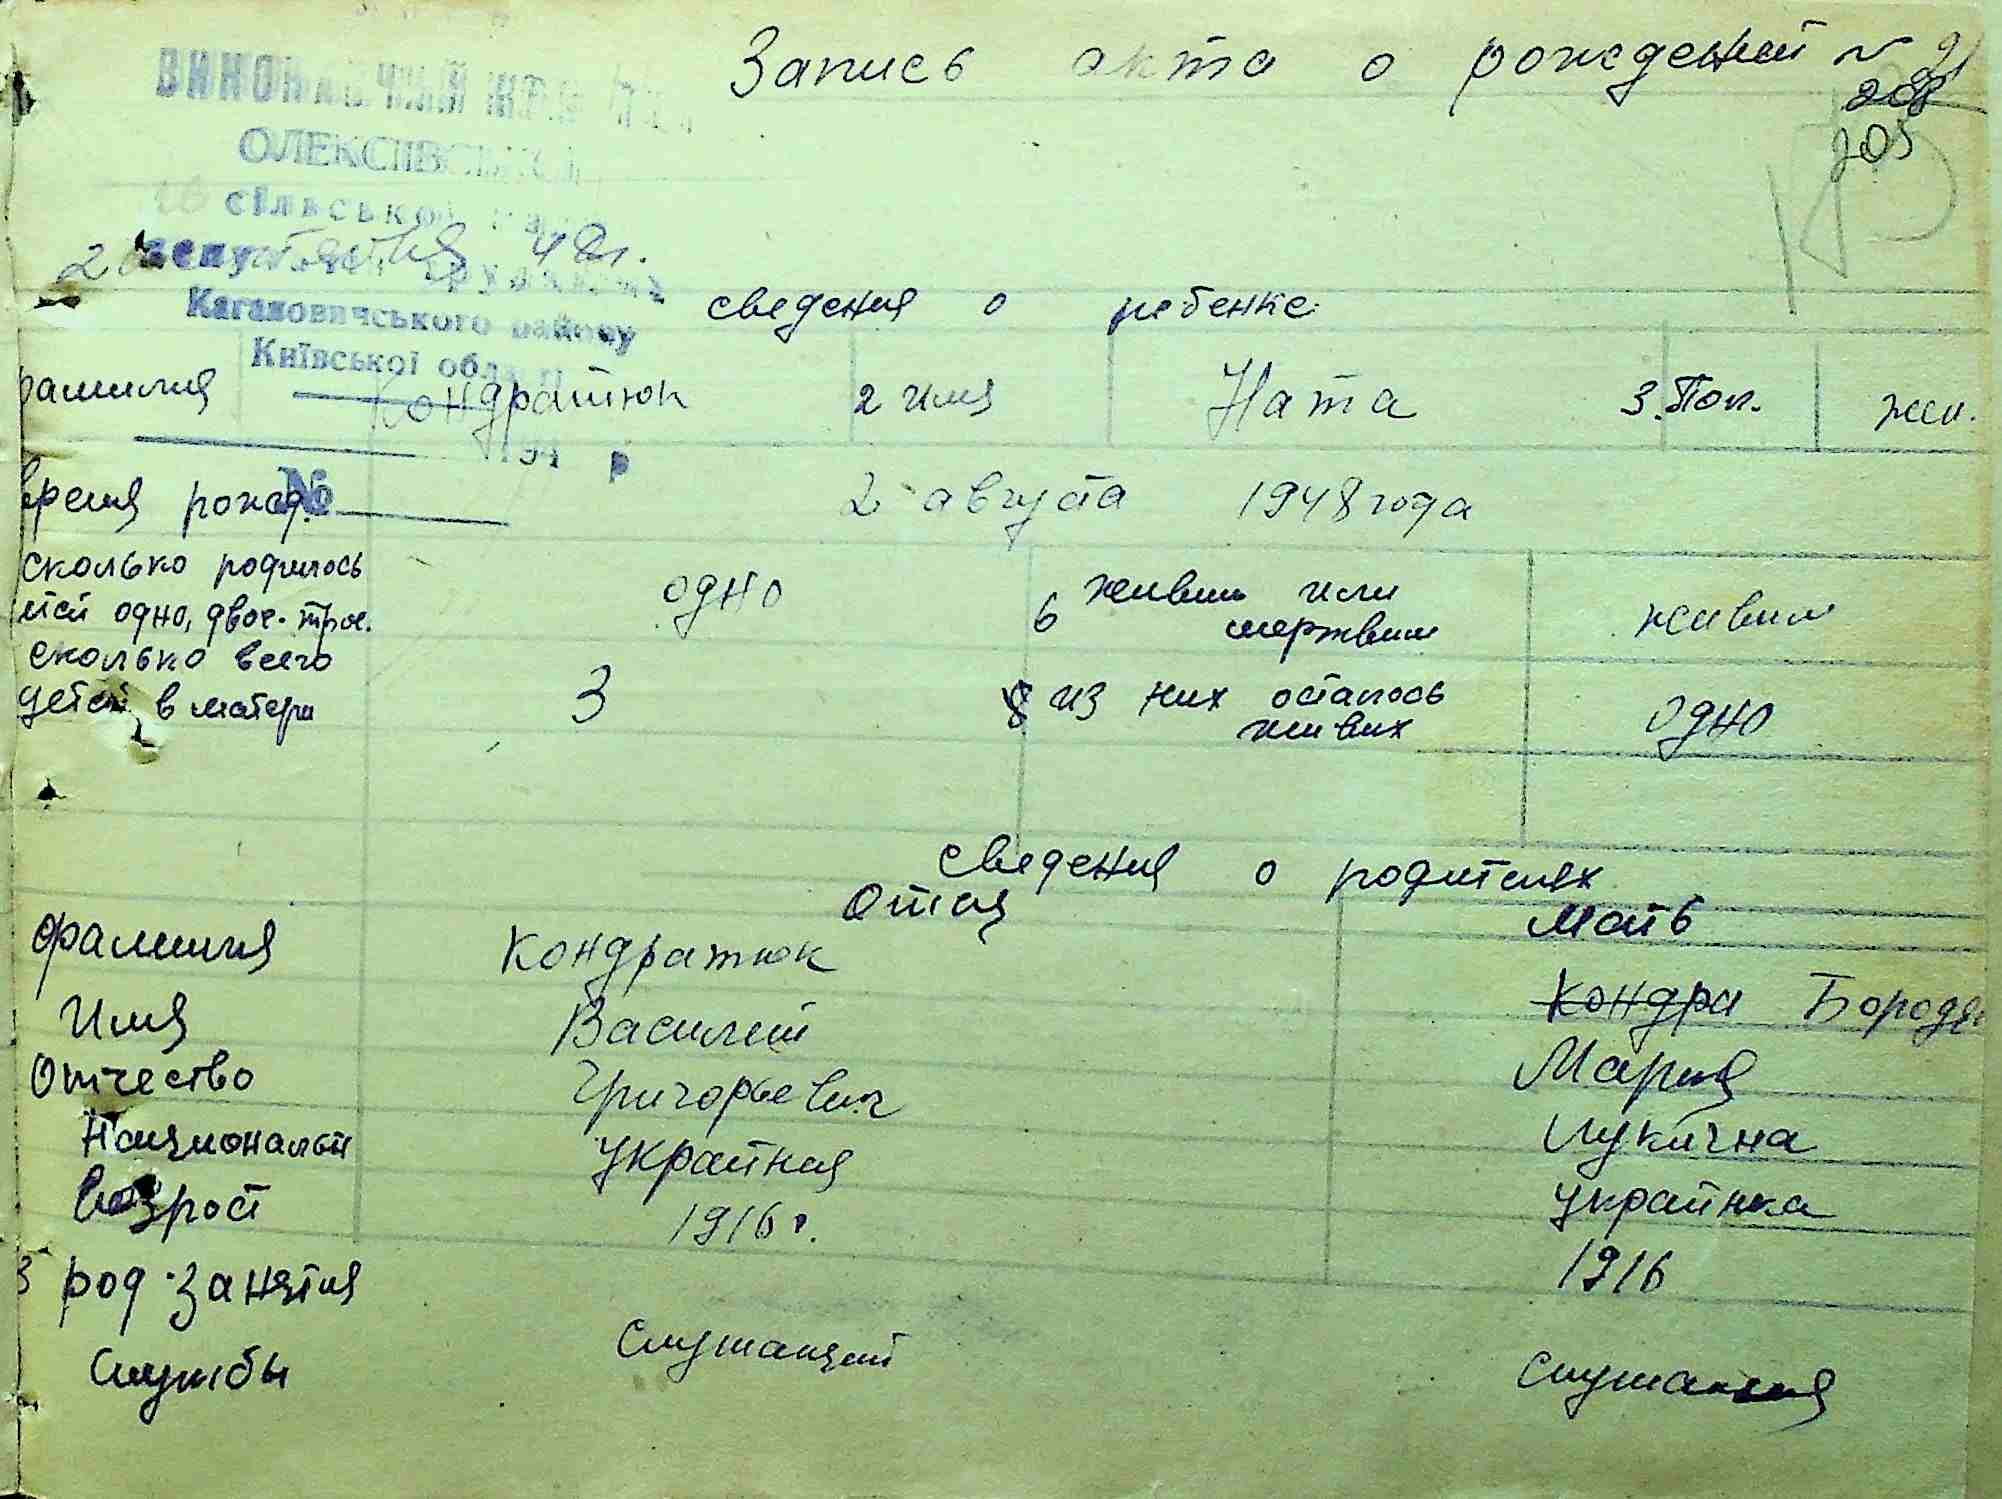 Запись акта о рождений № 91
208
205
ВИКОНАВЧИЙ
ОЛЕКСІЇВСЬКОЇ
сільської
Кагановичського району
Київської області
сведения о ребенке
фамилия Кондратюк 2 имя Ната 3. Пол. жен.
194 р
№
время рожд. 2 августа 1948 года
сколько родилось
одно, двое. трое. одно 6 живым или мертвым живым
сколько всего
детей в матери 3 8 из них осталось живих одно
сведения о родителях
Отец Мать
Фамилия Кондратюк Кондра
Имя Василий Мария
Отчество Григорьевич Лукична
Национальн украинец украинка
Возраст 1916 г. 1916
род занятия
службы служащий служащия